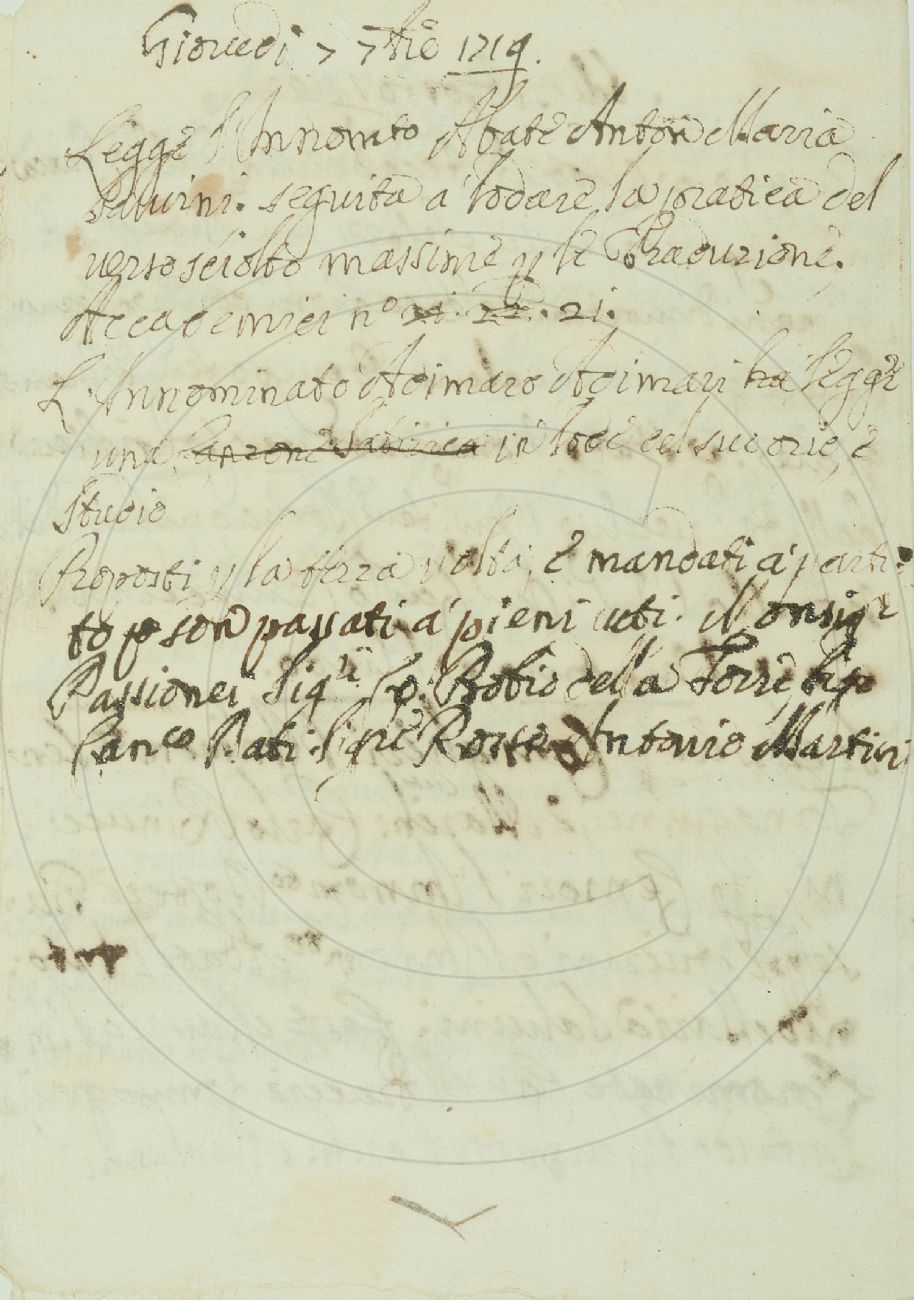 Giovedì 7 7bre 1719.
Legge l'Innom.to Abate Anton Maria
Salvini. seguita a lodare la pratica del
verso sciolto massime p le Traduzione.
Accademici n.o 21. 22. 21.
L'Innominato Adimaro Adimari ha legge
una Canzone Satirica in lode del suo ozio, è
studio
Proposti p la terza volta, è mandati à parti:
to p son passati à pieni voti. Monsig.r
Passionei Sig.ri Della Torre,
Can.co Pati. Sig.re Rosso Antonio Martini